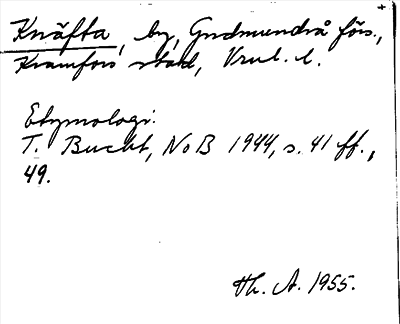 Knäfta, by, Gudmundrå förs.,
Kramfors stad, Vrnl. l.
Etymologi:
T. Bucht, NoB 1944, s. 41 ff.,
49.
Th. A. 1955.